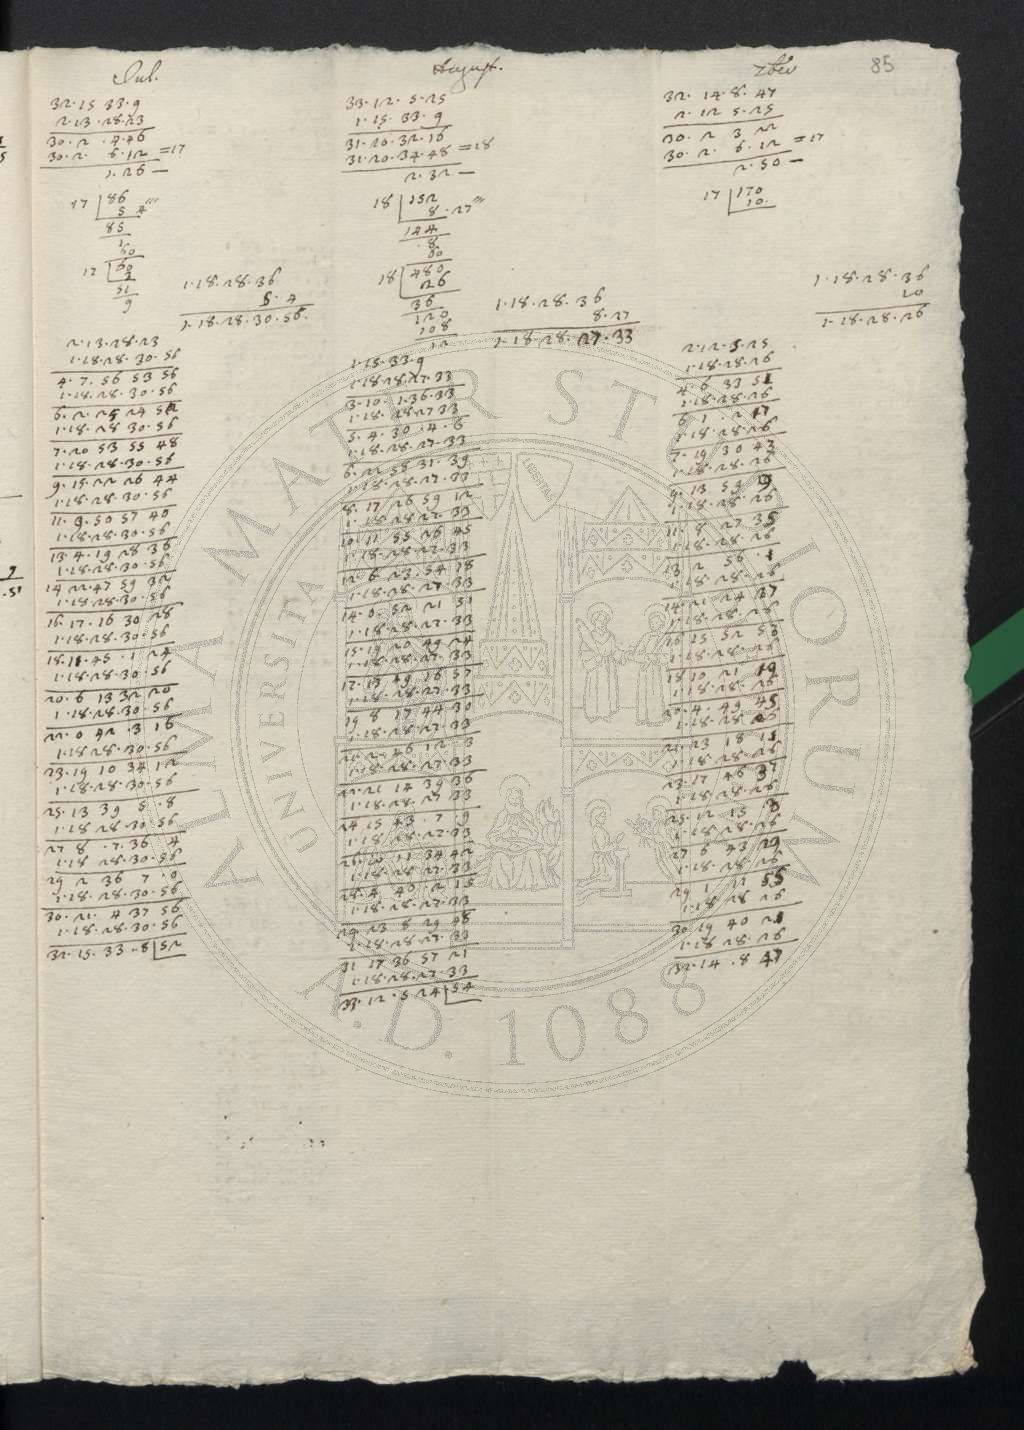 85
Iul.
32.15 33.9
2.13.28.23
30.2 .4.46
30.2. 6.12 =17
1.26—
17 86
5 4'''
85
1
60
17 60
3
51
9
1.18.28.36
5.4
1.18.28.30.56.
2.13.28.23
1.18.28.30.56
4.7.56 53 56
1.18.28.30.56
6.2.25 24 52
1.18.28 30.56
7.20 53 55 48
1.18.28.30.56
9.15.22 26 44
1.18.28.30.56
11.9.50 57 40
1.18.28.30.56
13.4.19 28 36
1.18.28.30.56
14 22.47 59 32
1.18.28.30.56
16.17.16 30 28
1.18.28.30.56
18.11.45.1 24
1.18.28.30.56
20.6 13 32 20
1.18.28.30.56
22.0 42.3 16
1.18 28.30.56
23.19 10 34 12
1.18.28.30.56
25.13 39 5.8
1.18 28.30.56
27 8 .7.36 4
1.18 28.30.56
29 2 36 7.0
1.18.28.30.56
30.21.4 37 56
1.18.28.30.56
32.15.33.8 52
August.
33.12.5.25
1.15.33.9
31.20.32.16
31.20.34.48 =18
2.32—
18 152
8.27'''
144
8
60
18 480
26
36
120
108
12
1.18.28.36
8.27
1.18.28.27.33
1.15.33.9
1.18 28.27.33
3.10.1.36.33
1.18.28 27 33
5.4.30.4.6
1.18.28.27.33
6.22 58 31.39
1.18.28.27.33
8.17 26 59 12
1.18 28 27.33
10.11 55 26 45
1.18.28.27.33
12.6 23.54 18
1.18.28.27.33
14.0.52 21 51
1.18.28.27.33
15.19 20 49 24
1.18.28.27.33
17.13 49 16 57
1.18.28.27.33
19 8 17 44 30
1.18.28.27.33
21.2.46 12 3
1.18.28.27.33
22.21 14 39 36
1.18.28.27 33
24 15 43.7 9
1.18 28.27.33
26.10 11 34 42
1.18.28 27.33
28.4.40.2 15
1.18.28.27.33
29 23 8 29 48
1.18.28.27.33
31 17 36 57 21
1.18.28.27.33
33.12.5 24 54
7ber
32. 14.8.47
2. 12 5.25
30.2 3 22
30.2. 6.12 =17
2.50—
17 170
10.
1.18.28.36
10
1.18.28.26
2.12.5.25
1.18.28.26
4.6 33 51
1.18.28.26
6 1 .2 17
1.18.28.26
7.19 30 43
1.18.28.26
9.13 59 9
1.18.28.26
11.8 27.35
1.18.28.26
13 2 56.1
1.18.28.26
14.21 24 27
1.18.28.26
16 15 52 53
1.18.28.26
18 10 21 19
1.18.28.26
20.4.49 45
1.18.28 26
21 23 18 11
1.18 28.26
23.17 46 37
1.18.28.26
25.12 15 3
1.18.28.26
27 6 43 29
1.18.28 26
29 1 11 55
1.18 28 26
30 19 40 21
1.18 28.26
32.14.8 47
ALMA MATER STUDIORUM
UNIVERSITÀ
A.D. 1088